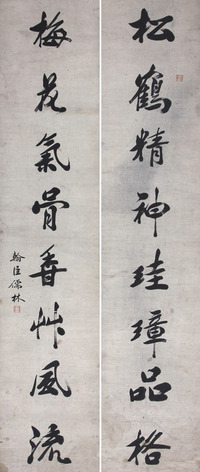 松鶴精神珪璋品格
梅花氣骨香艸風流
翰臣儒林